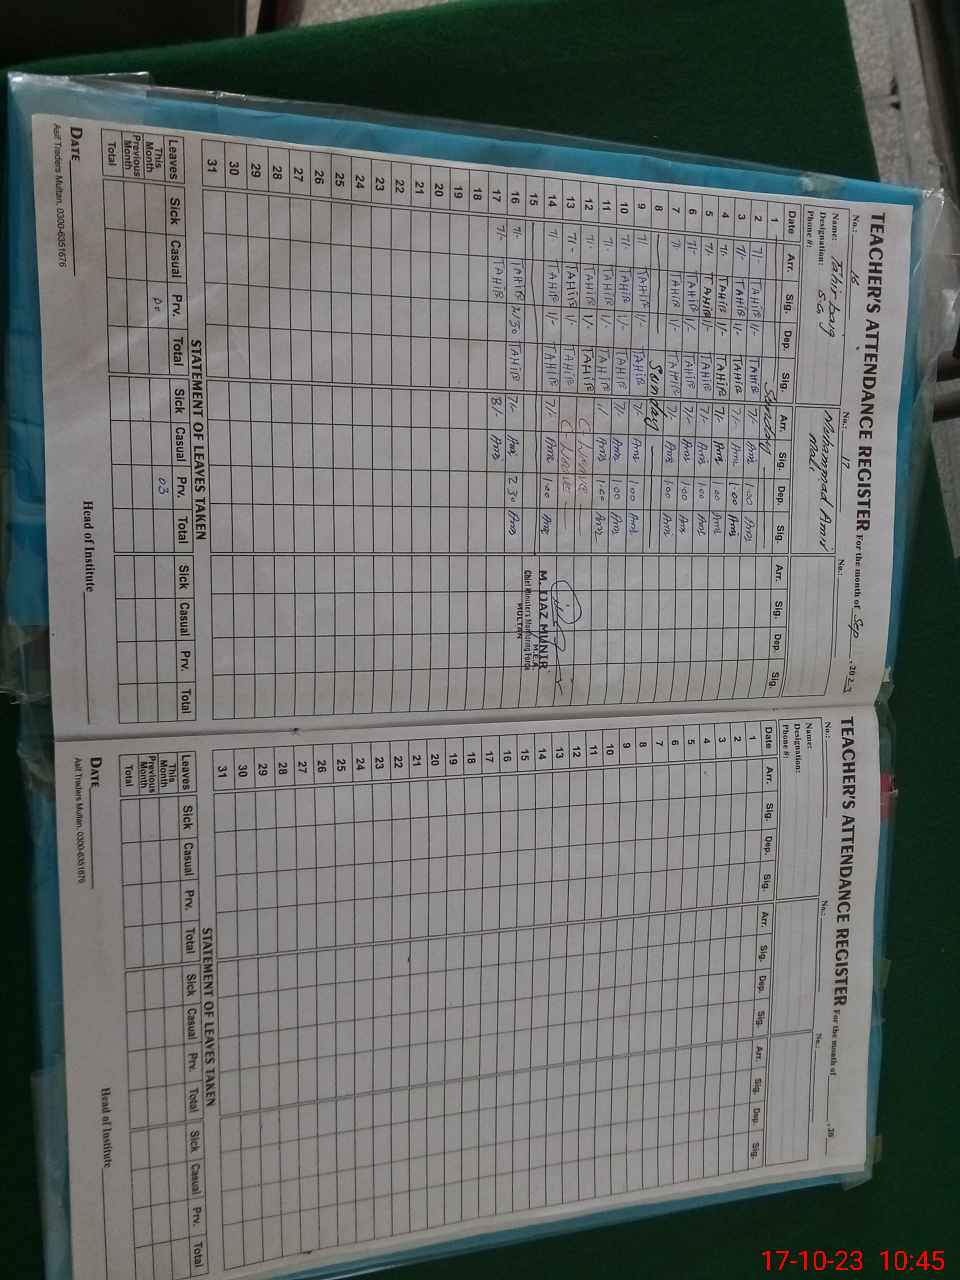 TEACHER'S ATTENDANCE REGISTER For the month of Sep, 2023
No.: 16 No.: 17 No.:
Name: Tahir baig Muhammad Amir
Designation: S.G Mali
Phone #:
Date Arr. Sig. Dep. Sig. Arr. Sig. Dep. Sig. Arr. Sig. Dep. Sig.
1 Sunday
2 7/- TAHIR 1/- TAHIR 7/- Ams 1:00 Ams
3 7/- TAHIR 1/- TAHIR 7/- Ams 1:00 Ams
4 7/- TAHIR 1/- TAHIR 7/- Ams 1:00 Ams
5 7/- TAHIR 1/- TAHIR 7/- Ams 1:00 Ams
6 7/- TAHIR 1/- TAHIR 7/- Ams 1:00 Ams
7 7/- TAHIR 1/- TAHIR 7/- Ams 1:00 Ams
8 Sunday
9 7/- TAHIR 1/- TAHIR 7/- Ams 1:00 Ams
10 7/- TAHIR 1/- TAHIR 7/- Ams 1:00 Ams
11 7/- TAHIR 1/- TAHIR 7/- Ams 1:00 Ams
12 7/- TAHIR 1/- TAHIR C Leave
13 7/- TAHIR 1/- TAHIR C Leave
14 7/- TAHIR 1/- TAHIR 7/- Ams 1:00 Ams
15
16 7/- TAHIR 2/30 TAHIR 7/- Ams 2 30 Ams
17 7/- TAHIR 8/- Ams
18
19
20
21
22
23
24
25
26
27
28
29
30
31
M. IJAZ MUNIR
M.E.A.
Chief Minister's Monitoring Force
MULTAN
STATEMENT OF LEAVES TAKEN
Leaves Sick Casual Prv. Total Sick Casual Prv. Total Sick Casual Prv. Total
This Month 03
Previous Month
Total
DATE Head of Institute
Asif Traders Multan. 0300-6351676
TEACHER'S ATTENDANCE REGISTER For the month of , 20
No.: No.: No.:
Name:
Designation:
Phone #:
Date Arr. Sig. Dep. Sig. Arr. Sig. Dep. Sig. Arr. Sig. Dep. Sig.
1
2
3
4
5
6
7
8
9
10
11
12
13
14
15
16
17
18
19
20
21
22
23
24
25
26
27
28
29
30
31
STATEMENT OF LEAVES TAKEN
Leaves Sick Casual Prv. Total Sick Casual Prv. Total Sick Casual Prv. Total
This Month
Previous Month
Total
DATE Head of Institute
Asif Traders Multan. 0300-6351676
17-10-23 10:45